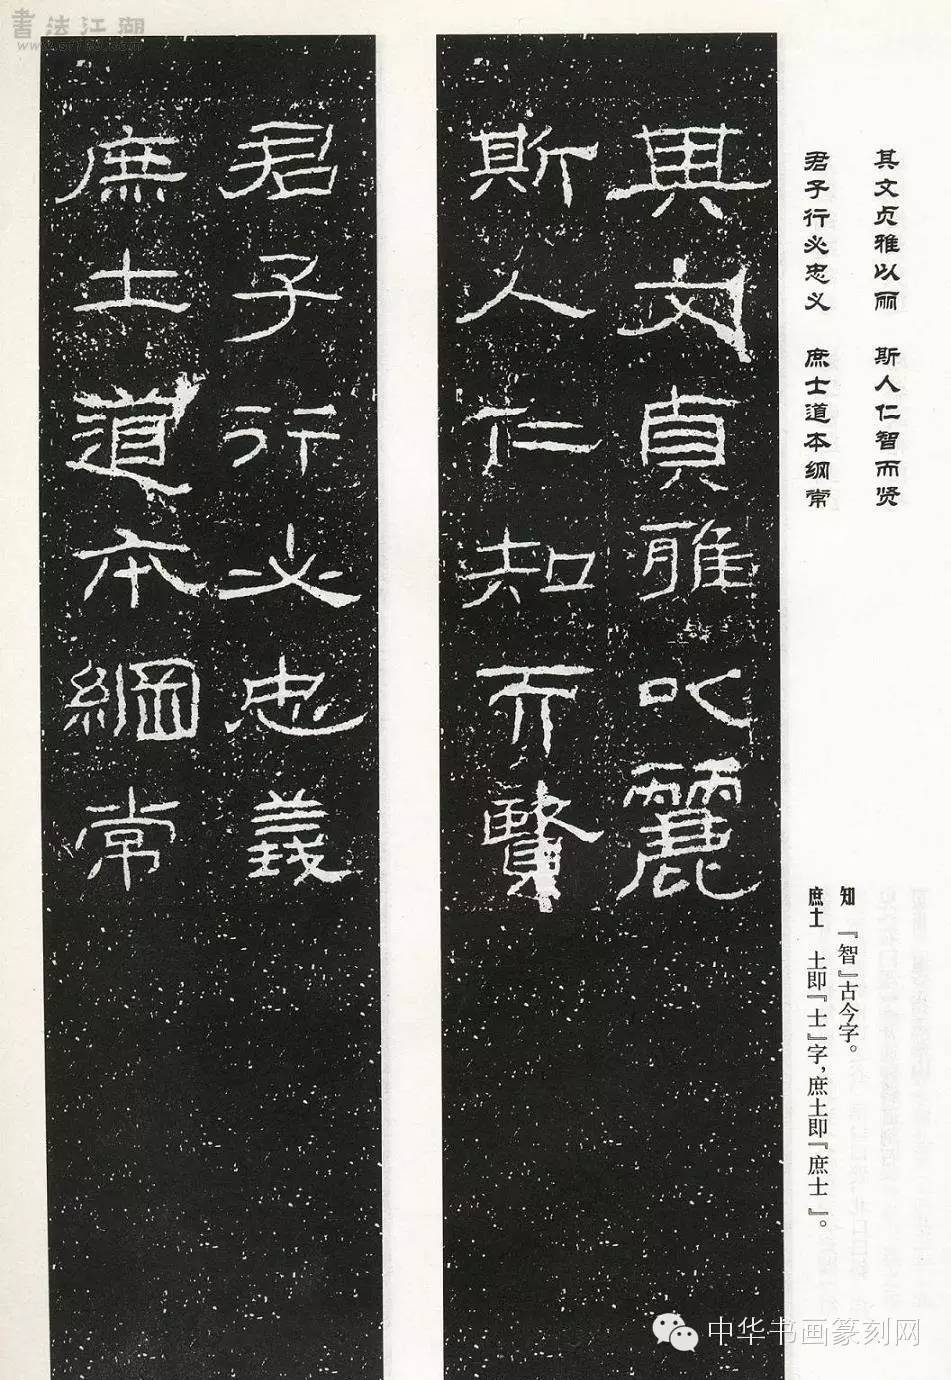 書法江湖
其文贞雅以丽　斯人仁智而贤
君子行必忠义　庶士道本纲常
其文貞雅以麗
斯人仁知而賢
君子行必忠義
庶土道本綱常
知　『智』古今字。
庶土　土即『士』字，庶土即『庶士』。
中华书画篆刻网